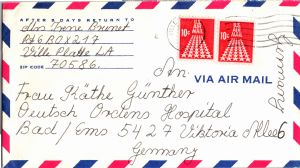 AFTER 5 DAYS RETURN TO
Mrs Irene Brunet
Rt 6 BOX 217
Ville Platte LA
ZIP CODE 70586.
10c
10c
An.
VIA AIR MAIL
Frau Käthe Günther
Deutsch Orclens Hospital
Bad/Ems 5427 Viktoria Allee 6
Germany
Germany